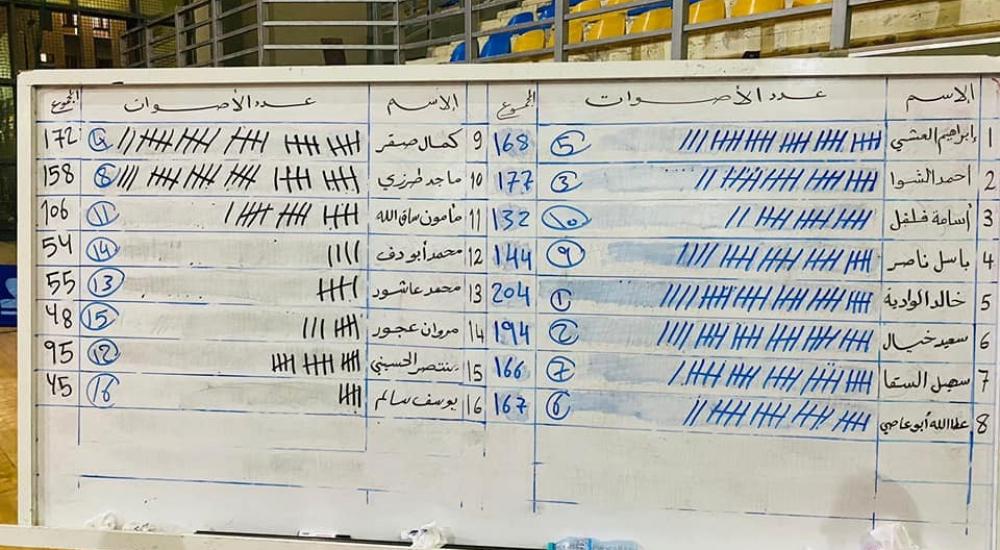 الاسم عدد الأصوات المجموع
1 إبراهيم العشي 5 168
2 أحمد الشوا 3 177
3 أسامة فلفل 10 132
4 باسل ناصر 9 144
5 خالد الوادية 1 204
6 سعيد خيال 2 194
7 سهيل السقا 7 166
8 عطا الله أبو عاصي 6 167
الاسم عدد الأصوات المجموع
9 كمال صقر 4 172
10 ماجد طرزي 8 158
11 مأمون ساق الله 11 106
12 محمد أبو دف 14 54
13 محمد عاشور 13 55
14 مروان عجور 15 48
15 منتصر الحسيني 12 95
16 يوسف سالم 16 45